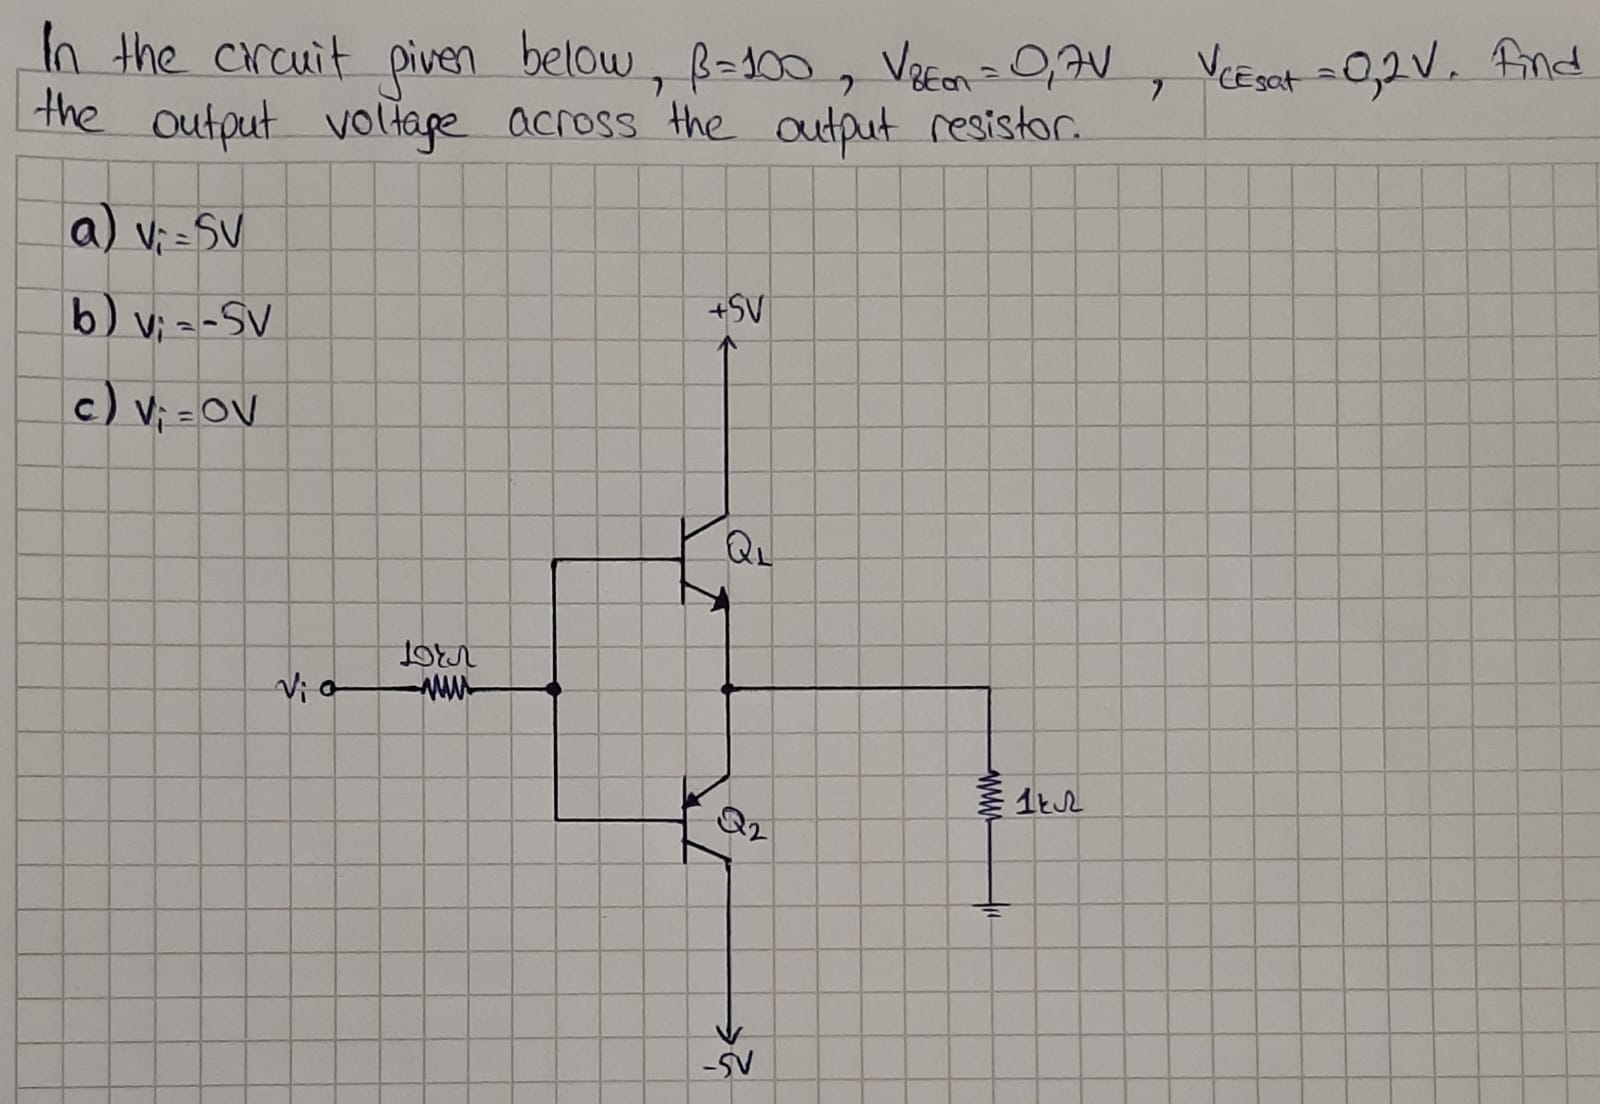 In the circuit given below, β=100, VBEon=0,7V, VCEsat=0,2V. find
the output voltage across the output resistor.
a) Vi=5V
b) Vi=-5V
c) Vi=0V
+5V
Q1
10kΩ
Vi
Q2
1kΩ
-5V